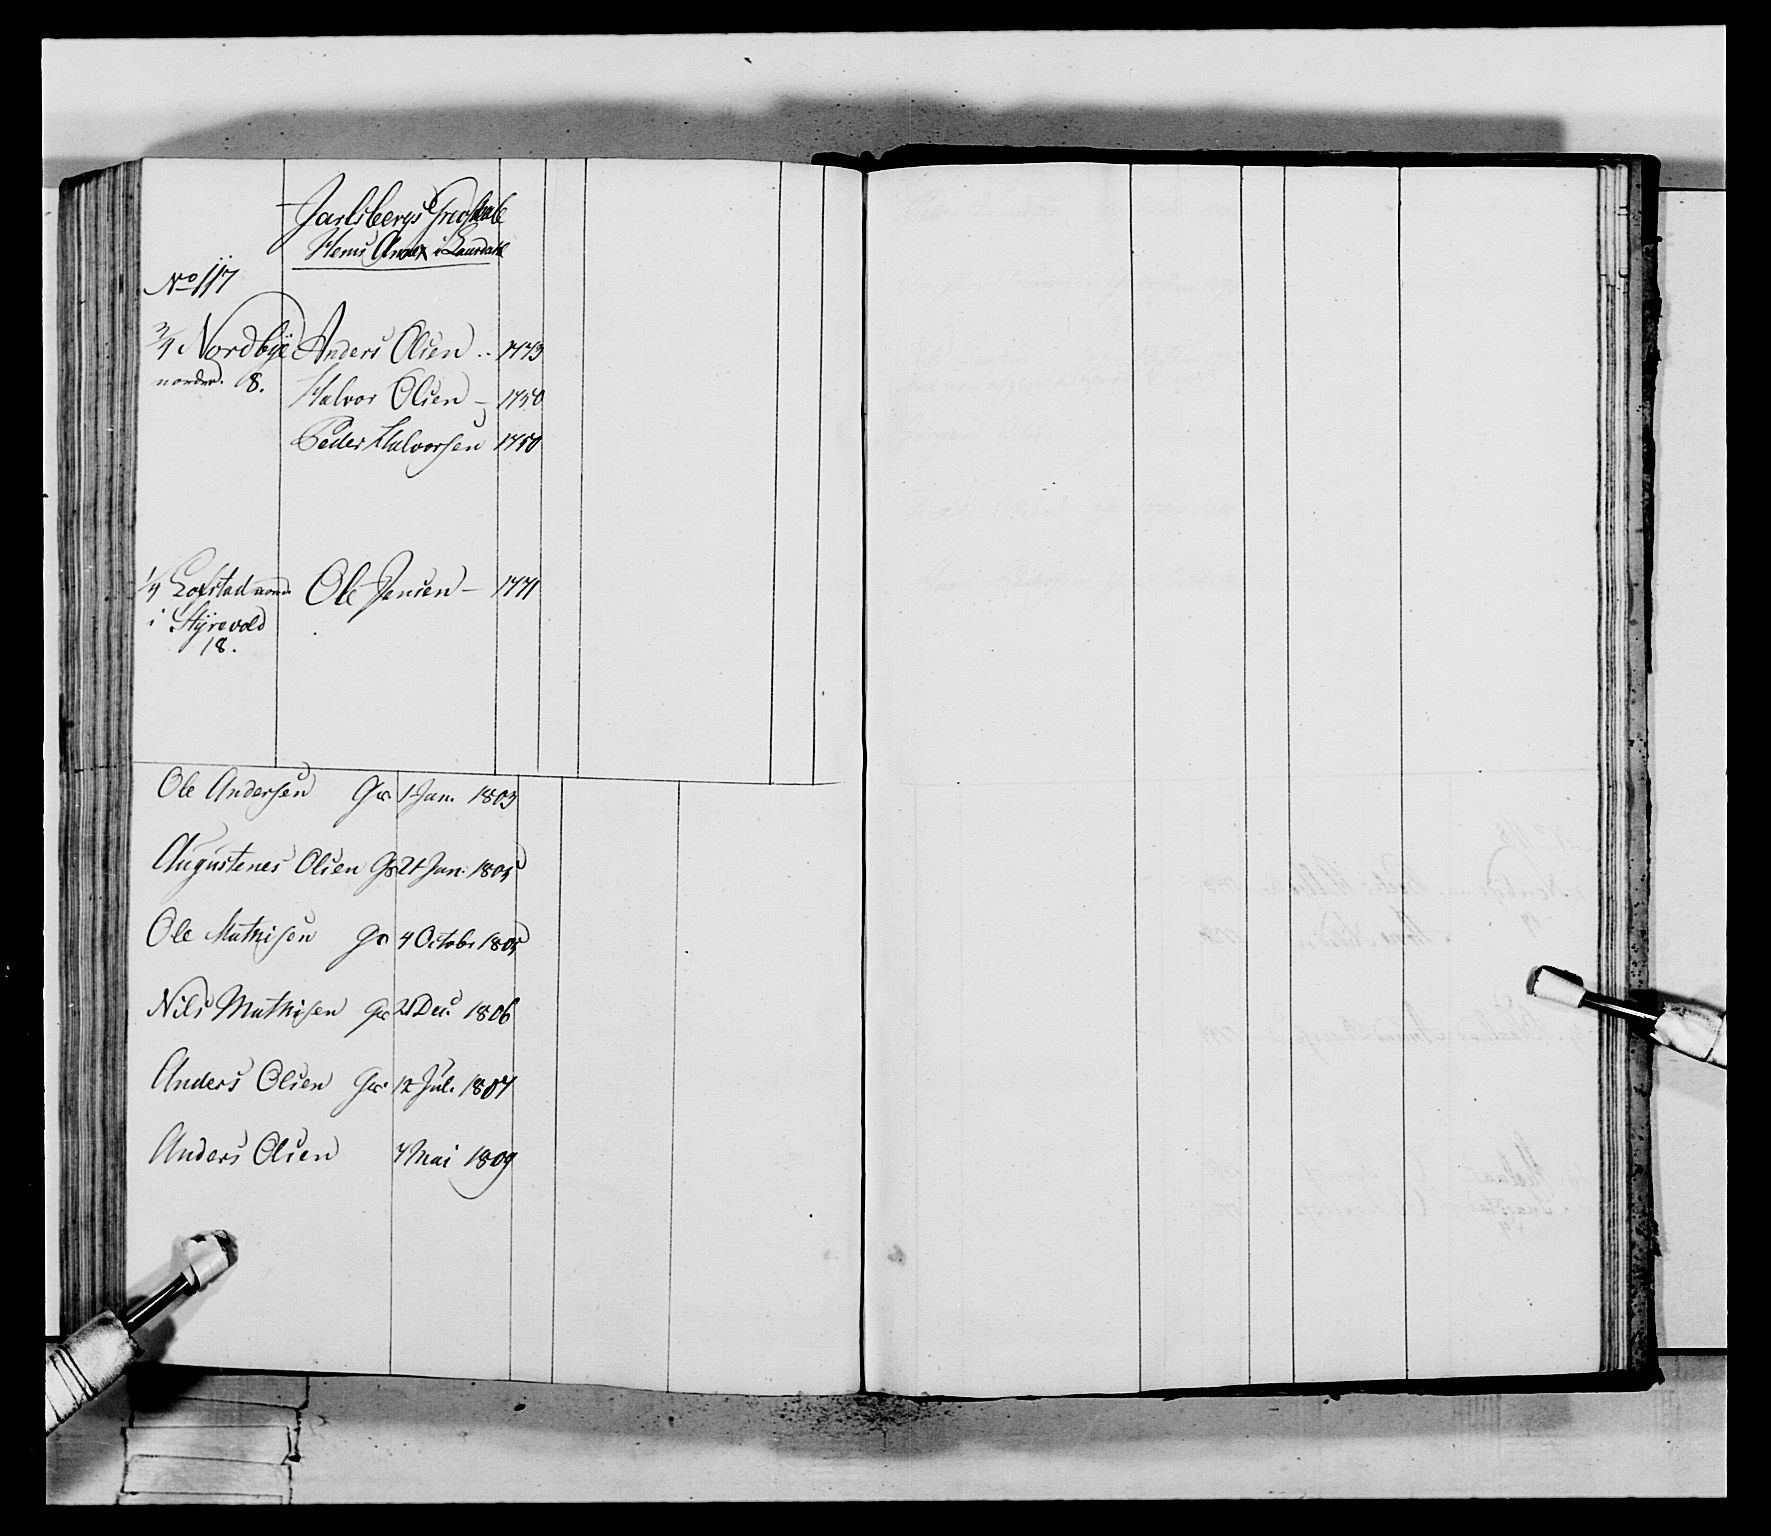 Jarlsbergs Grevskab
Hems Annex i Laurdahl
No 117
3/4 Nordbye Anders Olsen .. 1773
norder. 8.
Halvor Olsen – 1750
Peder Halvorsen 1780
1/4 Lofstad
Ole Jensen – 1771
i Styrevold
18.
Ole Andersen Gr 1 Jan. 1803
Augustenes Olsen Gr 21 Jan. 1805
Ole Mathisen Gr 4 Octobr 1805
Nils Mathisen Gr 21 Dec. 1806
Anders Olsen Gr. 12 Jul. 1807
Anders Olsen 7 Mai 1809